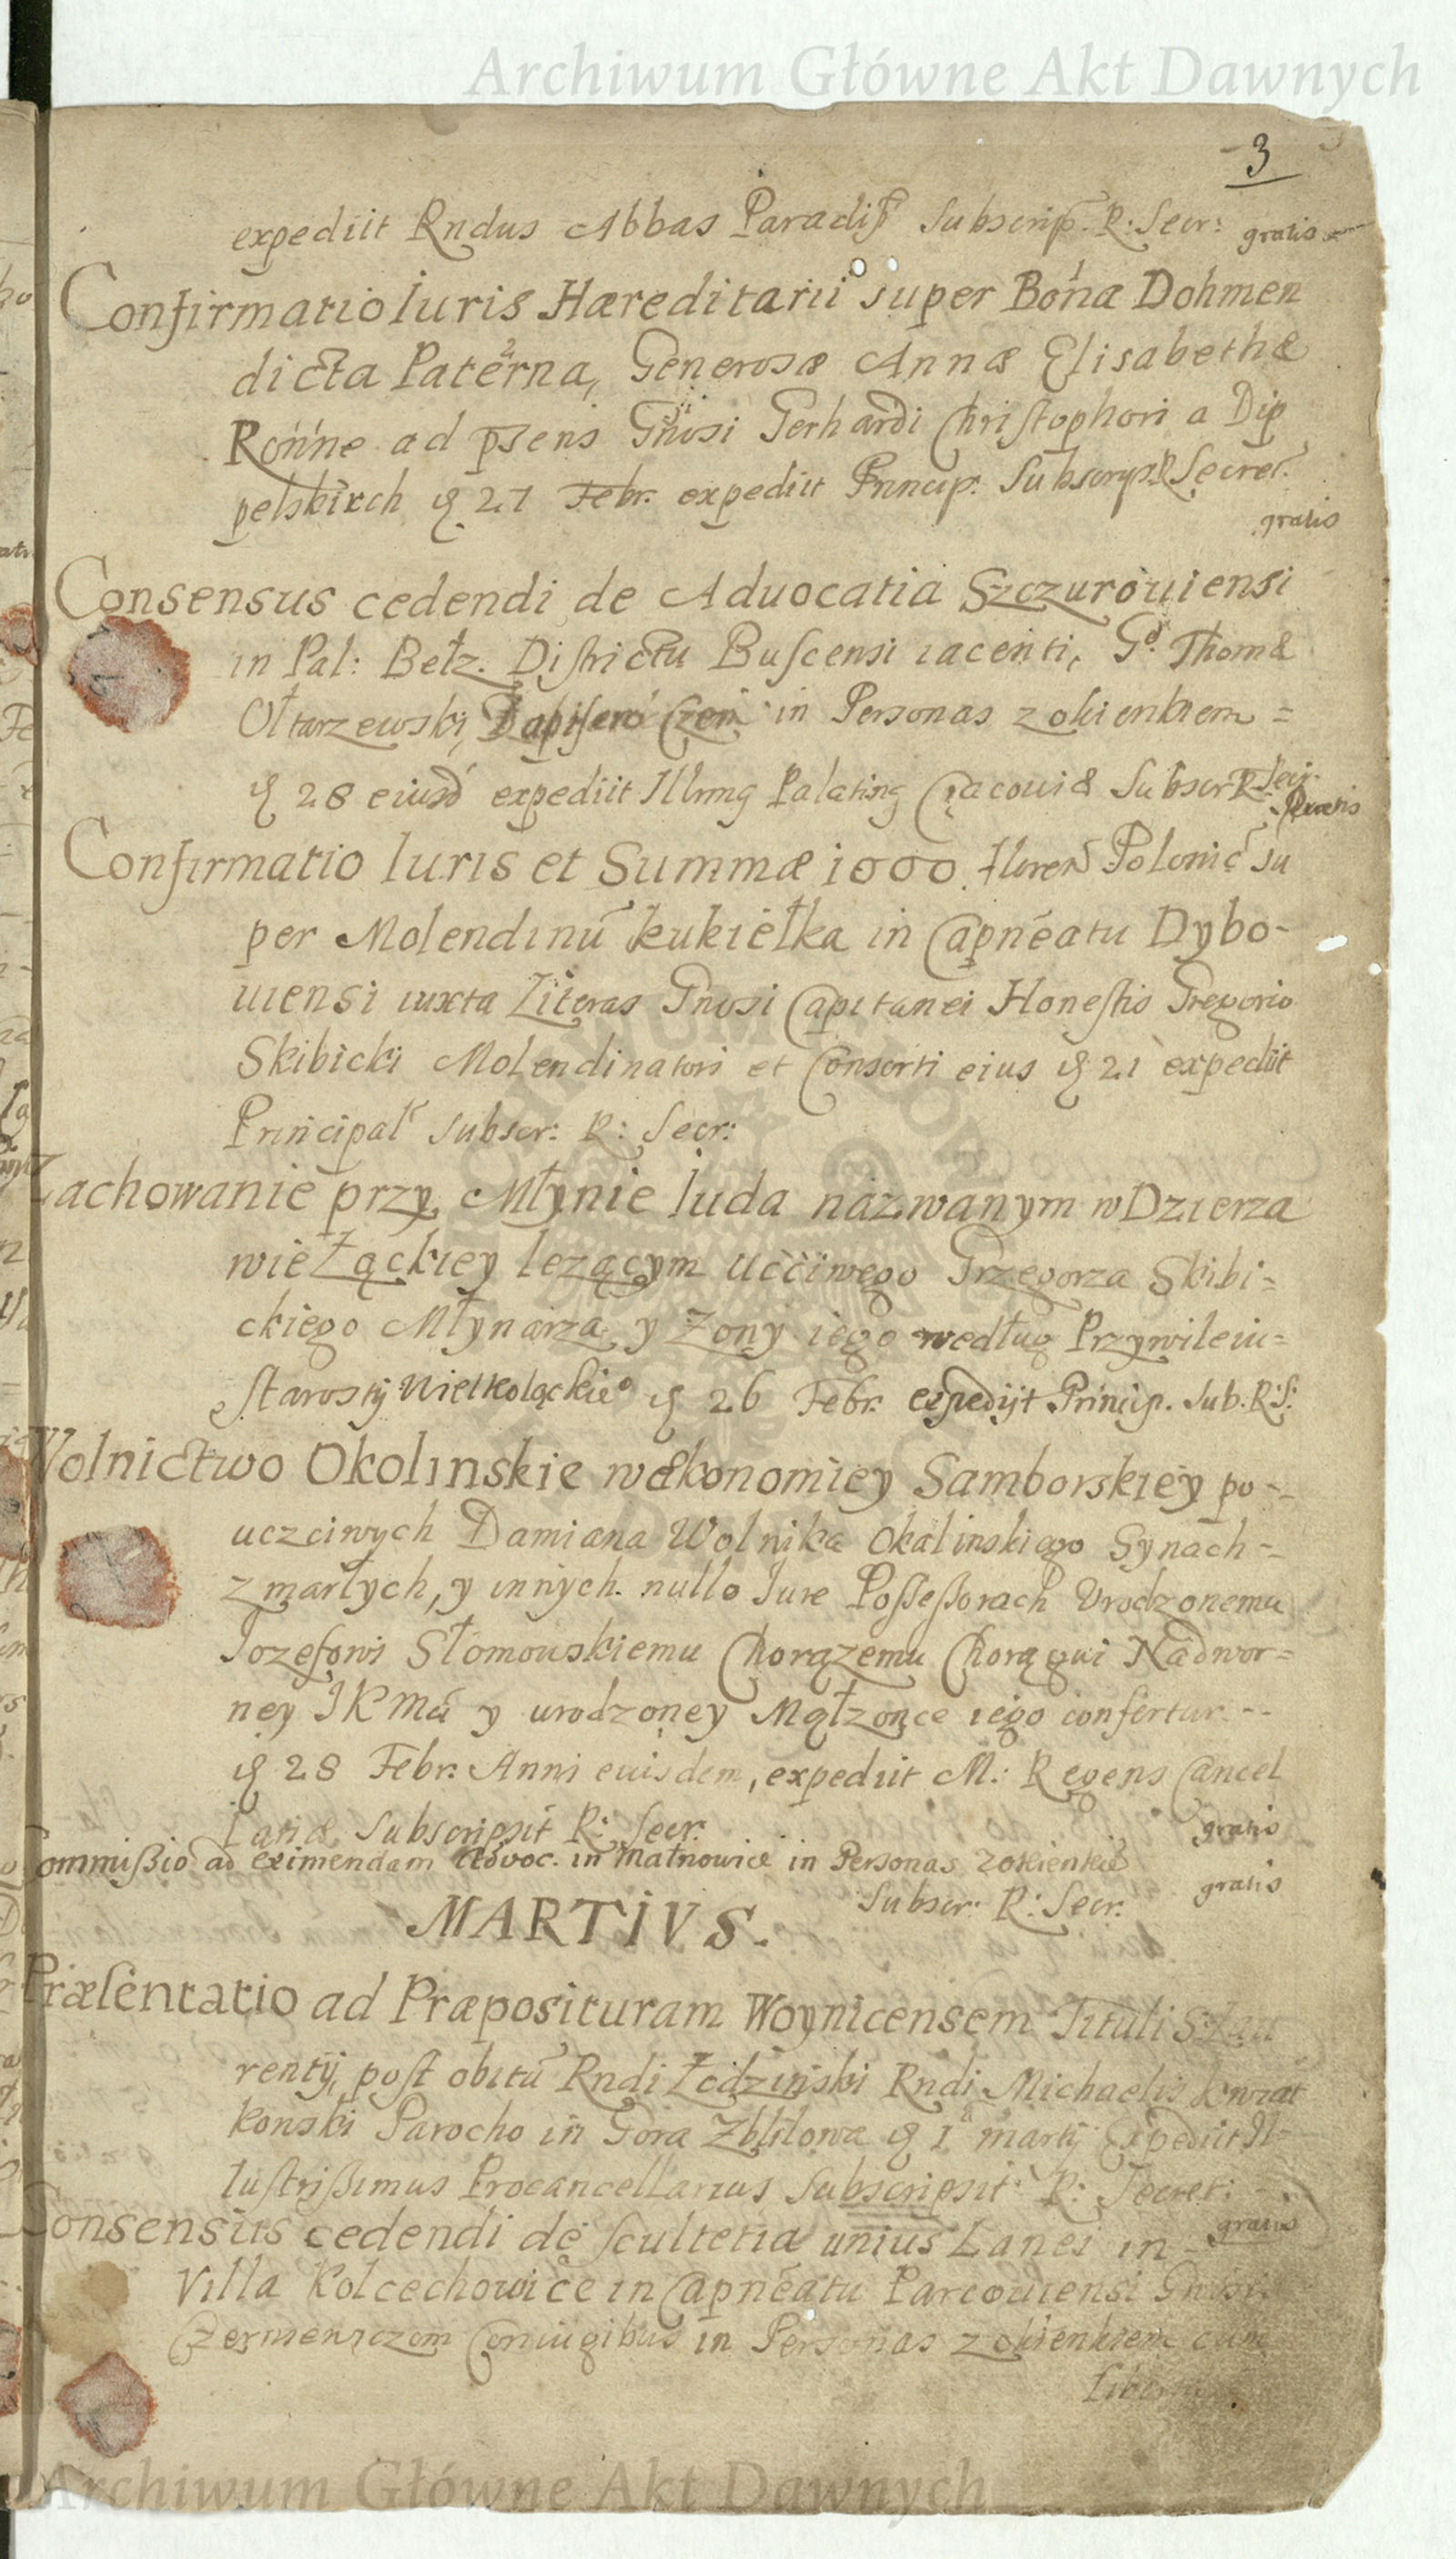 Archiwum Główne Akt Dawnych
3
expediit Rndus Abbas Paradiß Subscrip. R: Secr: gratis
Confirmatio Iuris Hæreditarii super Bona Dohmen
dicta Paterna, Generosæ Annæ Elisabethæ
Rönne ad psens Gnosi Gerhardi Christophori a Dip
pelskirch 27 Febr. expediit Princip. Subscrip. R Secret.
gratis
Consensus cedendi de Aduocatia Szczurouiensi
in Pal: Bełz. Districtu Buscensi iacenti, Gº Thomæ
Ołtarzewski, in Personas z okienkiem =
28 eiusd expediit Illmg Palating Cracouiæ Subscr R Secr.
gratis
Confirmatio Iuris et Summæ 1000. floren Polonic su
per Molendinū Kukiełka in Capnéatu Dybo-
uiensi iuxta Literas Gnosi Capitanei Honestis Gregorio
Skibicki Molendinatori et Consorti eius 21 expediit
Principal Subscr: R: Secr:
Zachowanie przy Młynie Iuda nazwanym w Dzierza
wie Łąckiey lezącym Uccíwego Grzegorza Skibi=
ckiego Młynarza y Zony iego według Przywileiu=
Starosty Wielkoląckieº 26 Febr. expedijt Princip. Sub. R: S:
Wolnictwo Okolinskie w Ækonomiey Samborskiey po -
uczciwych Damiana Wolnika Okalinskiego Synach -
zmarłych, y innych nullo Iure Possessorach Urodzonemu
Iozefowi Słomouskiemu Chorązemu Chorągwi Nadwor=
ney IKMci y urodzoney Małzonce iego confertur --
28 Febr. Anni euisdem, expediit M: Regens Cancel
lariæ Subscripsit R: Secr. gratis
Commißio ad eximendam Advoc. in Małnowice in Personas zokienkie
Subscr: R: Secr. gratis
MARTIVS.
Præsentatio ad Præposituram Woynicensem Tituli S. Lau
rentij, post obitū Rndi Łodzinski Rndi Michaelis Kwiat
konski Parocho in Gora Zblitowa 1ª martij Expediit Il=
lustrißimus Procancellarius Subscripsit R: Secret:
Consensus cedendi de Scultetia unius Lanei in - gratis
Villa Kolcechowice in Capnéatu Parcouiensi Gnosis
Coniugibus in Personas z okienkiem cum
Archiwum Główne Akt Dawnych